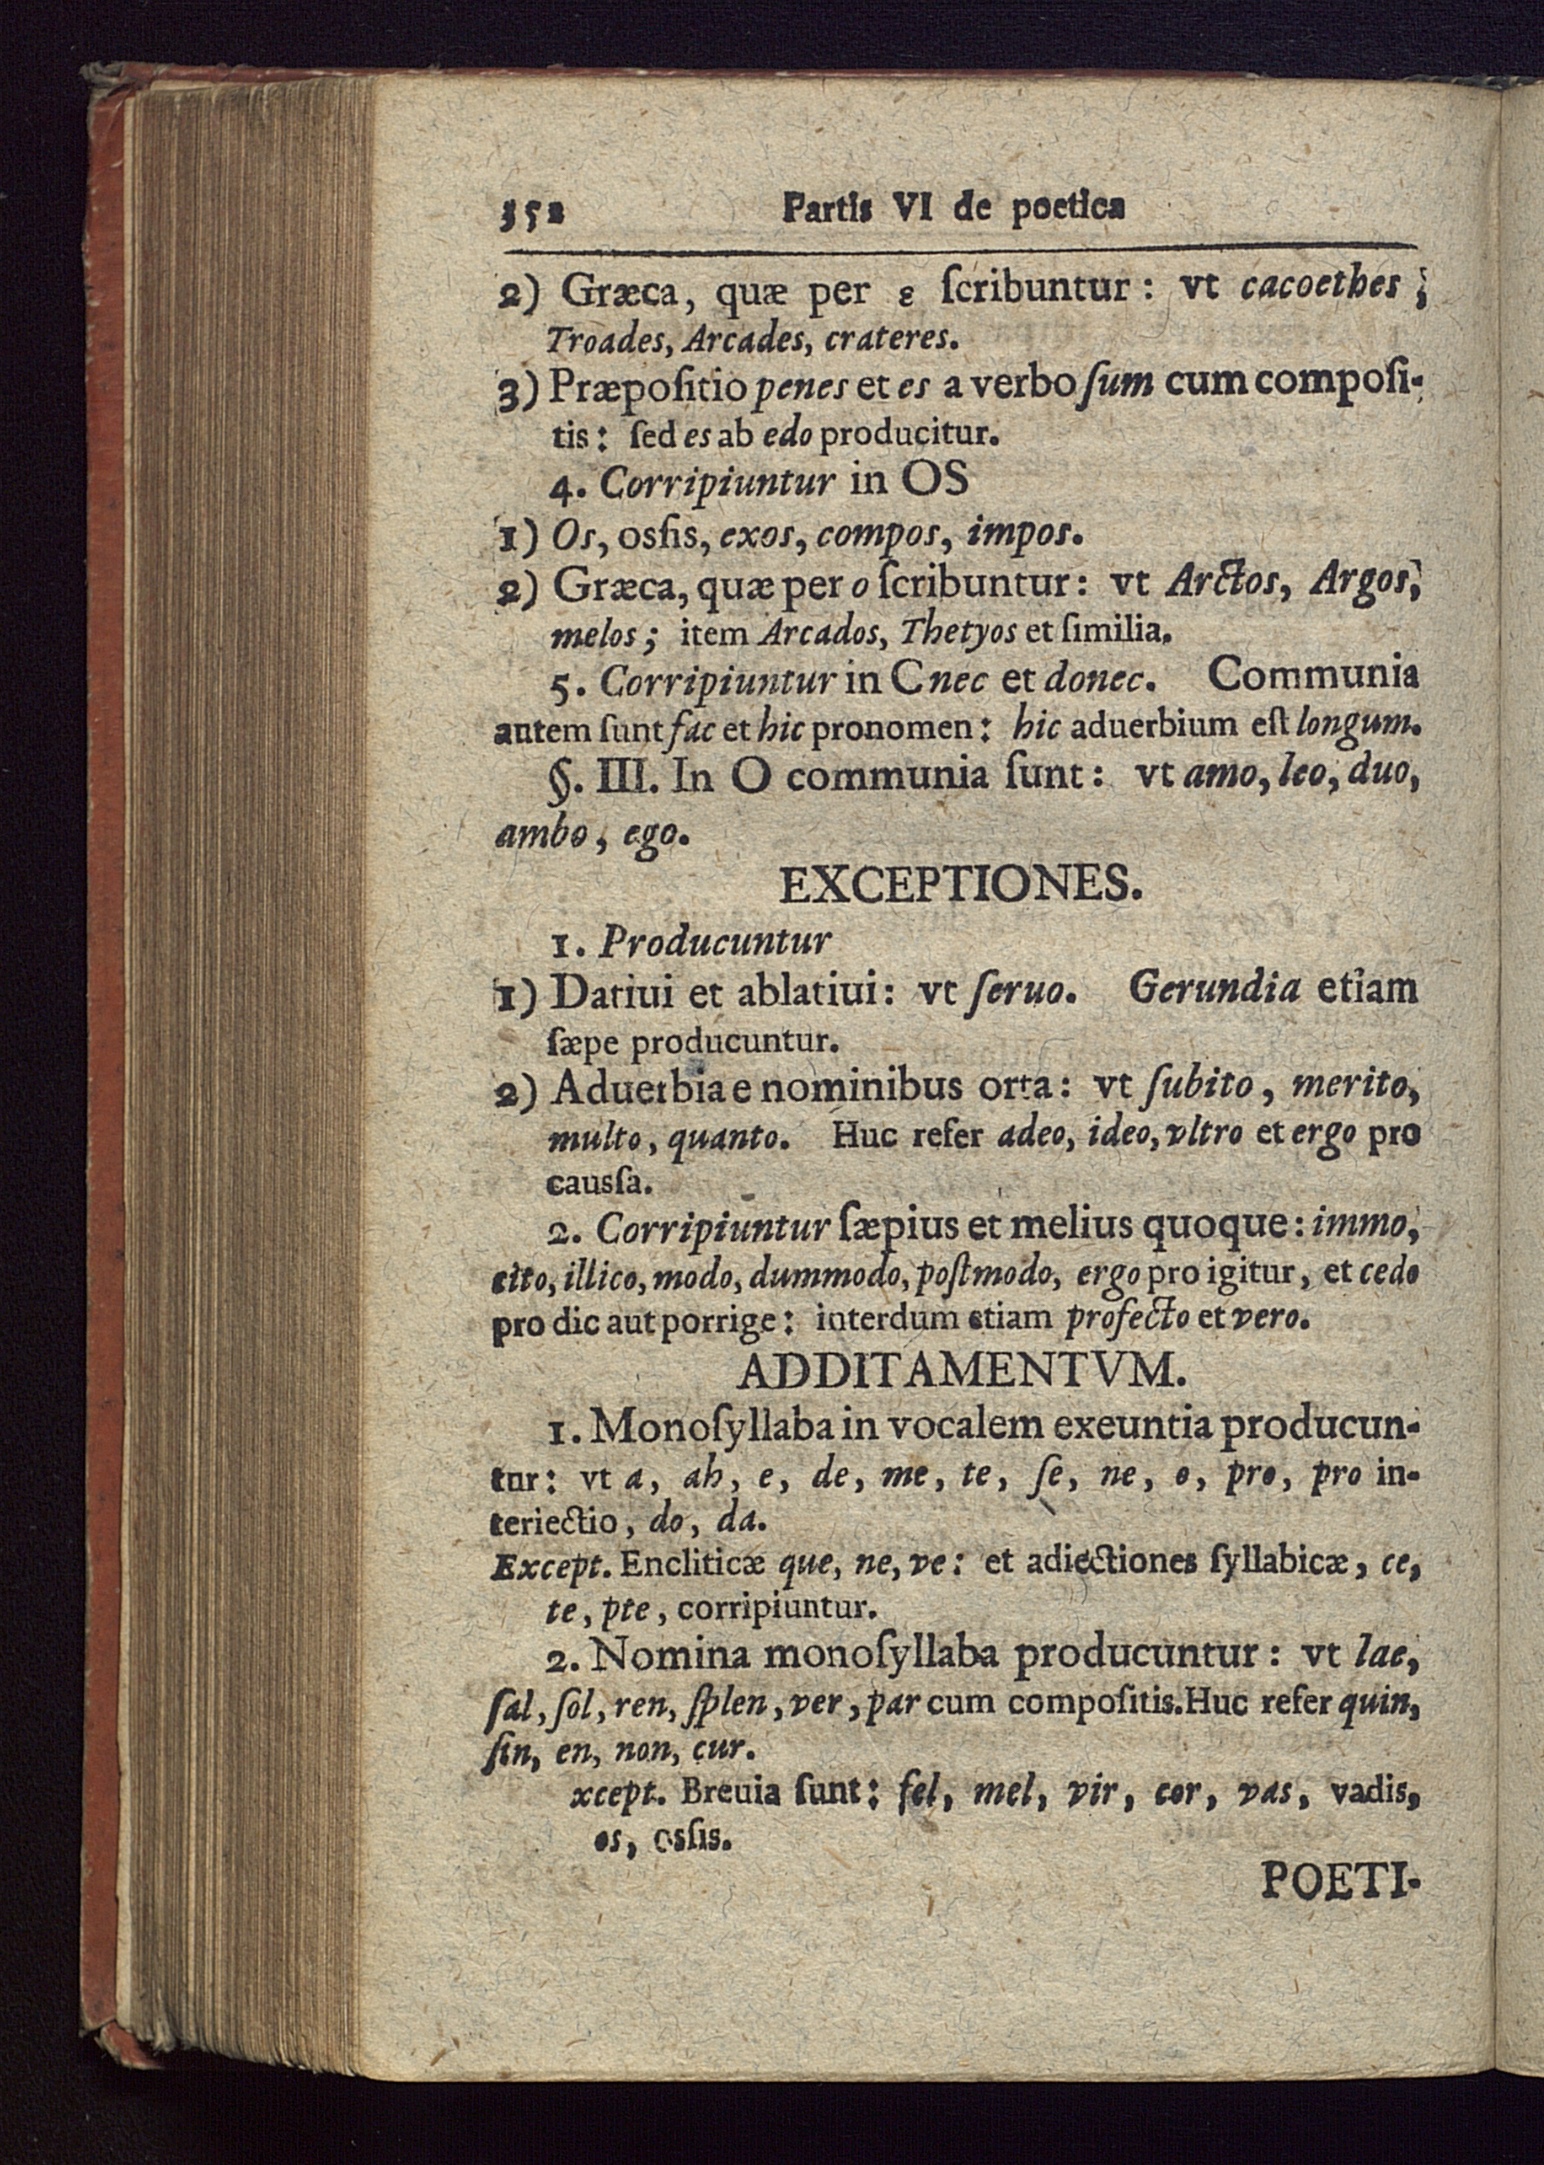 352 Partis VI de poetica
2) Græca, quæ per ε ſcribuntur: vt cacoethes;
Troades, Arcades, crateres.
3) Præpoſitio penes et es a verbo ſum cum compoſi-
tis: ſed es ab edo producitur.
4. Corripiuntur in OS
1) Os, osſis, exos, compos, impos.
2) Græca, quæ per o ſcribuntur: vt Arctos, Argos,
melos; item Arcados, Thetyos et ſimilia.
5. Corripiuntur in C nec et donec. Communia
autem ſunt fac et hic pronomen: hic aduerbium eſt longum.
§. III. In O communia ſunt: vt amo, leo, duo,
ambo, ego.
EXCEPTIONES.
1. Producuntur
1) Datiui et ablatiui: vt ſeruo. Gerundia etiam
ſæpe producuntur.
2) Aduerbia e nominibus orta: vt ſubito, merito,
multo, quanto. Huc refer adeo, ideo, vltro et ergo pro
causſa.
2. Corripiuntur ſæpius et melius quoque: immo,
cito, illico, modo, dummodo, poſtmodo, ergo pro igitur, et cedo
pro dic aut porrige: interdum etiam profecto et vero.
ADDITAMENTVM.
1. Monoſyllaba in vocalem exeuntia producun-
tur: vt a, ah, e, de, me, te, ſe, ne, o, pro, pro in-
teriectio, do, da.
Except. Encliticæ que, ne, ve: et adiectiones ſyllabicæ, ce,
te, pte, corripiuntur.
2. Nomina monoſyllaba producuntur: vt lac,
ſal, ſol, ren, ſplen, ver, par cum compoſitis. Huc refer quin,
ſin, en, non, cur.
xcept. Breuia ſunt: fel, mel, vir, cor, vas, vadis,
os, osſis.
POETI-